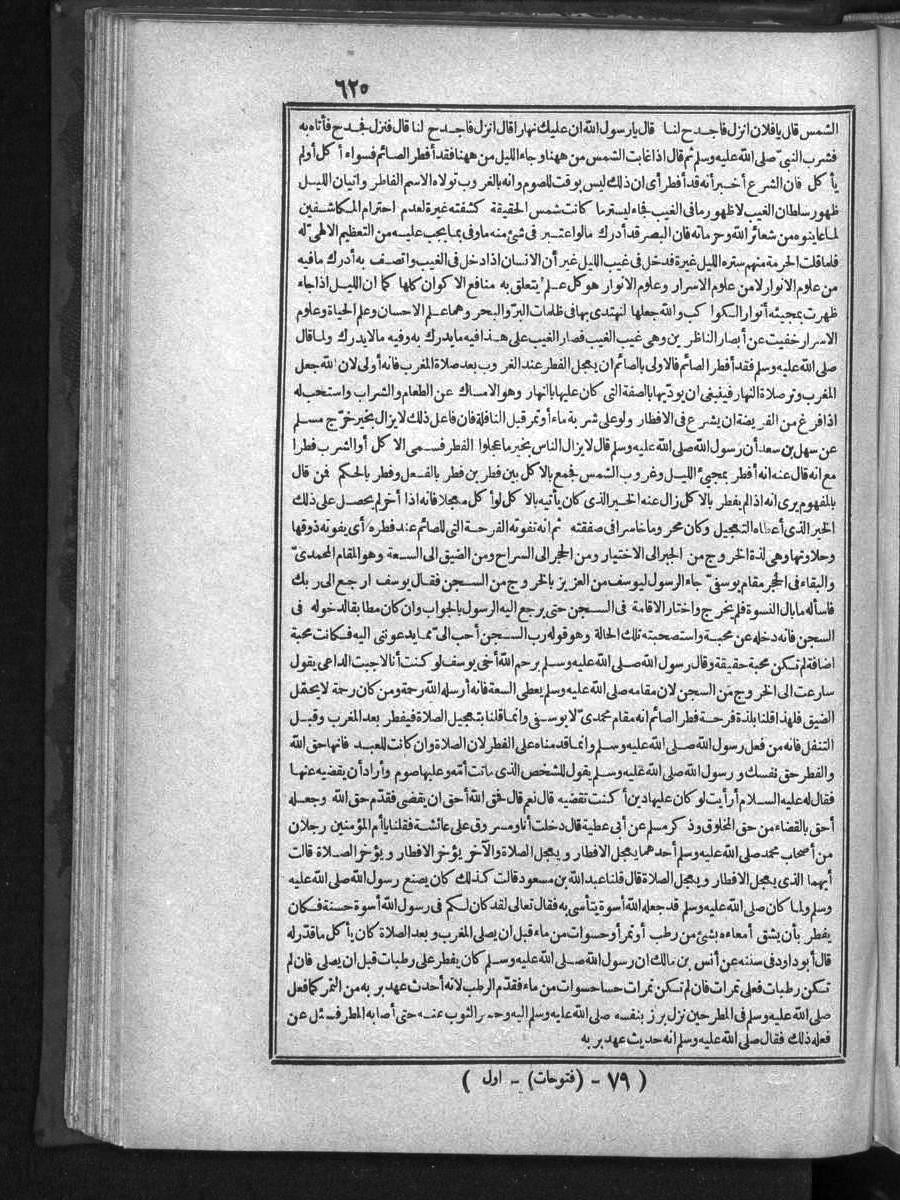 ٦٢٥
الشمس قال يا فلان انزل فاجدح لنا قال يا رسول الله ان عليك نهارا قال انزل فاجدح لنا قال فنزل فجدح فأتاه به
فشرب النبي صلى الله عليه وسلم ثم قال اذا غابت الشمس من ههنا وجاء الليل من ههنا فقد أفطر الصائم فسواء أكل أولم
يأكل فان الشرع أخبر أنه قد أفطر أى ان ذلك ليس بوقت للصوم وانه بالغروب تولاه الاسم الفاطر واتيان الليل
ظهور سلطان الغيب لا ظهور ما فى الغيب فجاء ليستر ما كانت شمس الحقيقة كشفته غيرة لعدم احترام المكاشفين
لما عاينوه من شعائر الله وحرماته فان البصر قد أدرك ما لو اعتبر فى شئ منه ما وفى بما يجب عليه من التعظيم الالهى له
فلما قلت الحرمة منهم ستره الليل غيرة فدخل فى غيب الليل غير أن الانسان اذا دخل فى الغيب واتصف به أدرك ما فيه
من علوم الانوار لا من علوم الاسرار وعلوم الانوار هو كل علم يتعلق به منافع الاكوان كلها كما ان الليل اذا جاء
ظهرت بمجيئه أنوار الكواكب والله جعلها لنهتدى بها فى ظلمات البر والبحر وهما علم الاحسان وعلم الحياة وعلوم
الاسرار خفيت عن أبصار الناظرين وهى غيب الغيب فصار الغيب على هذا فيه ما يدرك به وفيه ما لا يدرك ولما قال
صلى الله عليه وسلم فقد أفطر الصائم فالاولى بالصائم ان يعجل الفطر عند الغروب بعد صلاة المغرب فانه أولى لان الله جعل
المغرب وتر صلاة النهار فينبغى ان يؤديها بالصفة التى كان عليها بالنهار وهو الامساك عن الطعام والشراب واستحب له
اذا فرغ من الفريضة ان يشرع فى الافطار ولو على شربة ماء أو تمر قبل النافلة فان فاعل ذلك لا يزال بخير خرج مسلم
عن سهل بن سعد أن رسول الله صلى الله عليه وسلم قال لا يزال الناس بخير ما عجلوا الفطر فسمى الاكل أو الشرب فطرا
مع انه قال عنه انه أفطر بمجئ الليل وغروب الشمس فجمع بالاكل بين فطرين فطر بالفعل وفطر بالحكم فمن قال
بالمفهوم يرى انه اذا لم يفطر بالاكل زال عنه الخير الذى كان يأتيه بالاكل لو أكل معجلا فانه اذا أخر لم يحصل على ذلك
الخير الذى أعطاه التعجيل وكان محروما خاسرا فى صفقته ثم انه تفوته الفرحة التى للصائم عند فطره أى يفوته ذوقها
وحلاوتها وهى لذة الخروج من الجبر الى الاختيار ومن الحجر الى السراح ومن الضيق الى السعة وهو المقام المحمدى
والبقاء فى الحجر مقام يوسفى جاء الرسول ليوسف من العزيز بالخروج من السجن فقال يوسف ارجع الى ربك
فاسأله ما بال النسوة فلم يخرج واختار الاقامة فى السجن حتى يرجع اليه الرسول بالجواب وان كان مطابقا لدخوله فى
السجن فانه دخله عن محبة واستصحبته تلك الحالة وهو قوله رب السجن أحب الى مما يدعوننى اليه فكانت محبة
اضافة لم تكن محبة حقيقة وقال رسول الله صلى الله عليه وسلم يرحم الله أخى يوسف لو كنت أنا لاجبت الداعى يقول
سارعت الى الخروج من السجن لان مقامه صلى الله عليه وسلم يعطى السعة فانه أرسله الله رحمة ومن كان رحمة لا يحتمل
الضيق فلهذا قلنا بلذة فرحة فطر الصائم انه مقام محمدى لا يوسفى وانما قلنا بتعجيل الصلاة فيفطر بعد المغرب وقبل
التنفل فانه من فعل رسول الله صلى الله عليه وسلم وانما قدمناه على الفطر لان الصلاة وان كانت للعبد فانها حق الله
والفطر حق نفسك ورسول الله صلى الله عليه وسلم يقول للشخص الذى ماتت أمه وعليها صوم وأراد أن يقضيه عنها
فقال له عليه السلام أرأيت لو كان عليها دين أكنت تقضيه قال نعم قال فحق الله أحق ان يقضى فقدم حق الله وجعله
أحق بالقضاء من حق المخلوق وذكر مسلم عن أبى عطية قال دخلت أنا ومسروق على عائشة فقلنا يا أم المؤمنين رجلان
من أصحاب محمد صلى الله عليه وسلم أحدهما يعجل الافطار ويعجل الصلاة والآخر يؤخر الافطار ويؤخر الصلاة قالت
أيهما الذى يعجل الافطار ويعجل الصلاة قال قلنا عبد الله بن مسعود قالت كذلك كان يصنع رسول الله صلى الله عليه
وسلم ولما كان صلى الله عليه وسلم قد جعله الله أسوة يتأسى به فقال تعالى لقد كان لكم فى رسول الله أسوة حسنة فكان
يفطر بأن يشق أمعاءه بشئ من رطب أو تمر أو حسوات من ماء قبل ان يصلى المغرب وبعد الصلاة كان يأكل ما قدر له
قال أبو داود فى سننه عن أنس بن مالك ان رسول الله صلى الله عليه وسلم كان يفطر على رطبات قبل ان يصلى فان لم
تكن رطبات فعلى تمرات فان لم تكن تمرات حسا حسوات من ماء فقدم الرطب لانه أحدث عهد بربه من التمر كما فعل
صلى الله عليه وسلم فى المطر حين نزل برز بنفسه صلى الله عليه وسلم اليه وحسر الثوب عنه حتى أصابه المطر فسئل عن
فعله ذلك فقال صلى الله عليه وسلم انه حديث عهد بربه
( ٧٩ - (فتوحات) - اول )